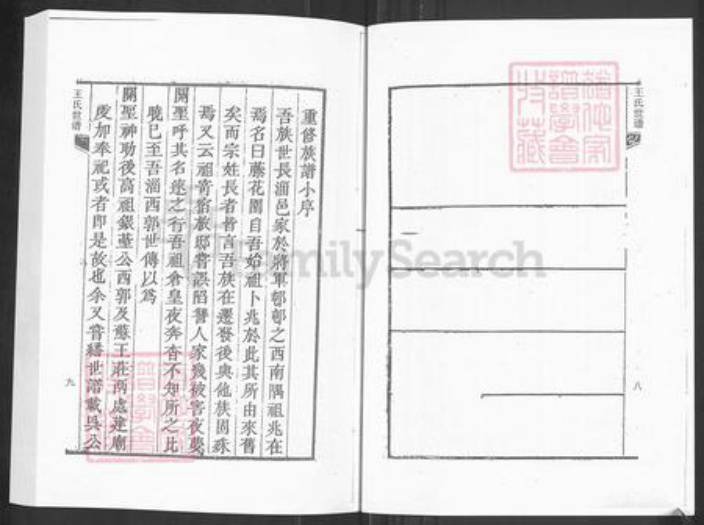 王氏世譜
八
重修族譜小序
吾族世長淄邑家於將軍邨邨之西南隅祖兆在
焉名曰藤花園自吾始祖卜兆於此其所由來舊
矣而宗姓長者皆言吾族在遷發後與他族固殊
焉又云祖嘗宿旅邸嘗誤陷讐人家幾被害夜夢
關聖呼其名速之行吾祖倉皇夜奔杳不知所之比
曉已至吾淄西郭世傳以爲
關聖神功後高祖 公西郭及 王莊兩處建廟
虔加奉祀或者即是故也余又嘗繙世譜載吳公
王氏世譜
九
FamilySearch